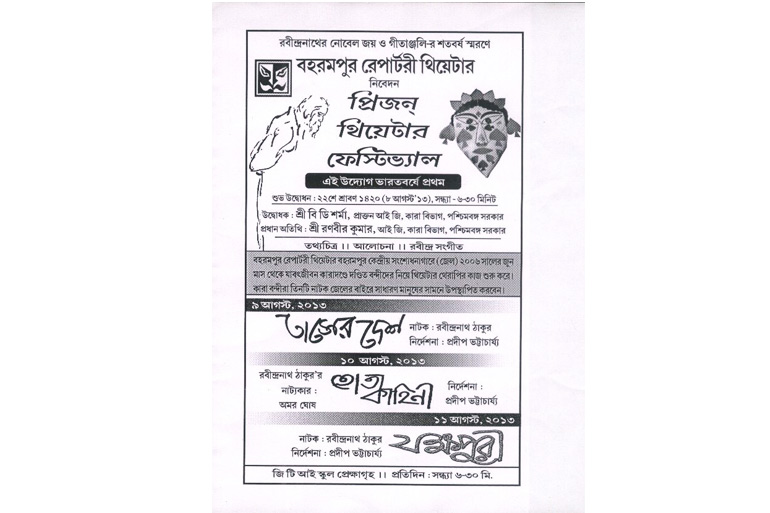 রবীন্দ্রনাথের নোবেল জয় ও গীতাঞ্জলি-র শতবর্ষ স্মরণে
বহরমপুর রেপার্টরী থিয়েটার
নিবেদন
প্রিজন্
থিয়েটার
ফেস্টিভ্যাল
এই উদ্যোগ ভারতবর্ষে প্রথম
শুভ উদ্বোধন : ২২শে শ্রাবণ ১৪২০ (৮ আগস্ট'১৩), সন্ধ্যা - ৬-৩০ মিনিট
উদ্বোধক : শ্রী বি ডি শর্মা, প্রাক্তন আই জি, কারা বিভাগ, পশ্চিমবঙ্গ সরকার
প্রধান অতিথি : শ্রী রণবীর কুমার, আই জি, কারা বিভাগ, পশ্চিমবঙ্গ সরকার
তথ্যচিত্র ।। আলোচনা ।। রবীন্দ্র সংগীত
বহরমপুর রেপার্টরী থিয়েটার বহরমপুর কেন্দ্রীয় সংশোধনাগারে (জেল) ২০০৬ সালের জুন
মাস থেকে যাবৎজীবন কারাদণ্ডে দণ্ডিত বন্দীদের নিয়ে থিয়েটার থেরাপির কাজ শুরু করে।
কারা বন্দীরা তিনটি নাটক জেলের বাইরে সাধারণ মানুষের সামনে উপস্থাপিত করবেন।
৯ আগস্ট, ২০১৩
তাসের দেশ
নাটক : রবীন্দ্রনাথ ঠাকুর
নির্দেশনা : প্রদীপ ভট্টাচার্য্য
১০ আগস্ট, ২০১৩
রবীন্দ্রনাথ ঠাকুর'র
নাট্যকার :
অমর ঘোষ
তোতা
কাহিনী
নির্দেশনা :
প্রদীপ ভট্টাচার্য্য
১১ আগস্ট, ২০১৩
নাটক : রবীন্দ্রনাথ ঠাকুর
নির্দেশনা : প্রদীপ ভট্টাচার্য্য
যক্ষপুরী
জি টি আই স্কুল প্রেক্ষাগৃহ ।। প্রতিদিন : সন্ধ্যা ৬-৩০ মি.